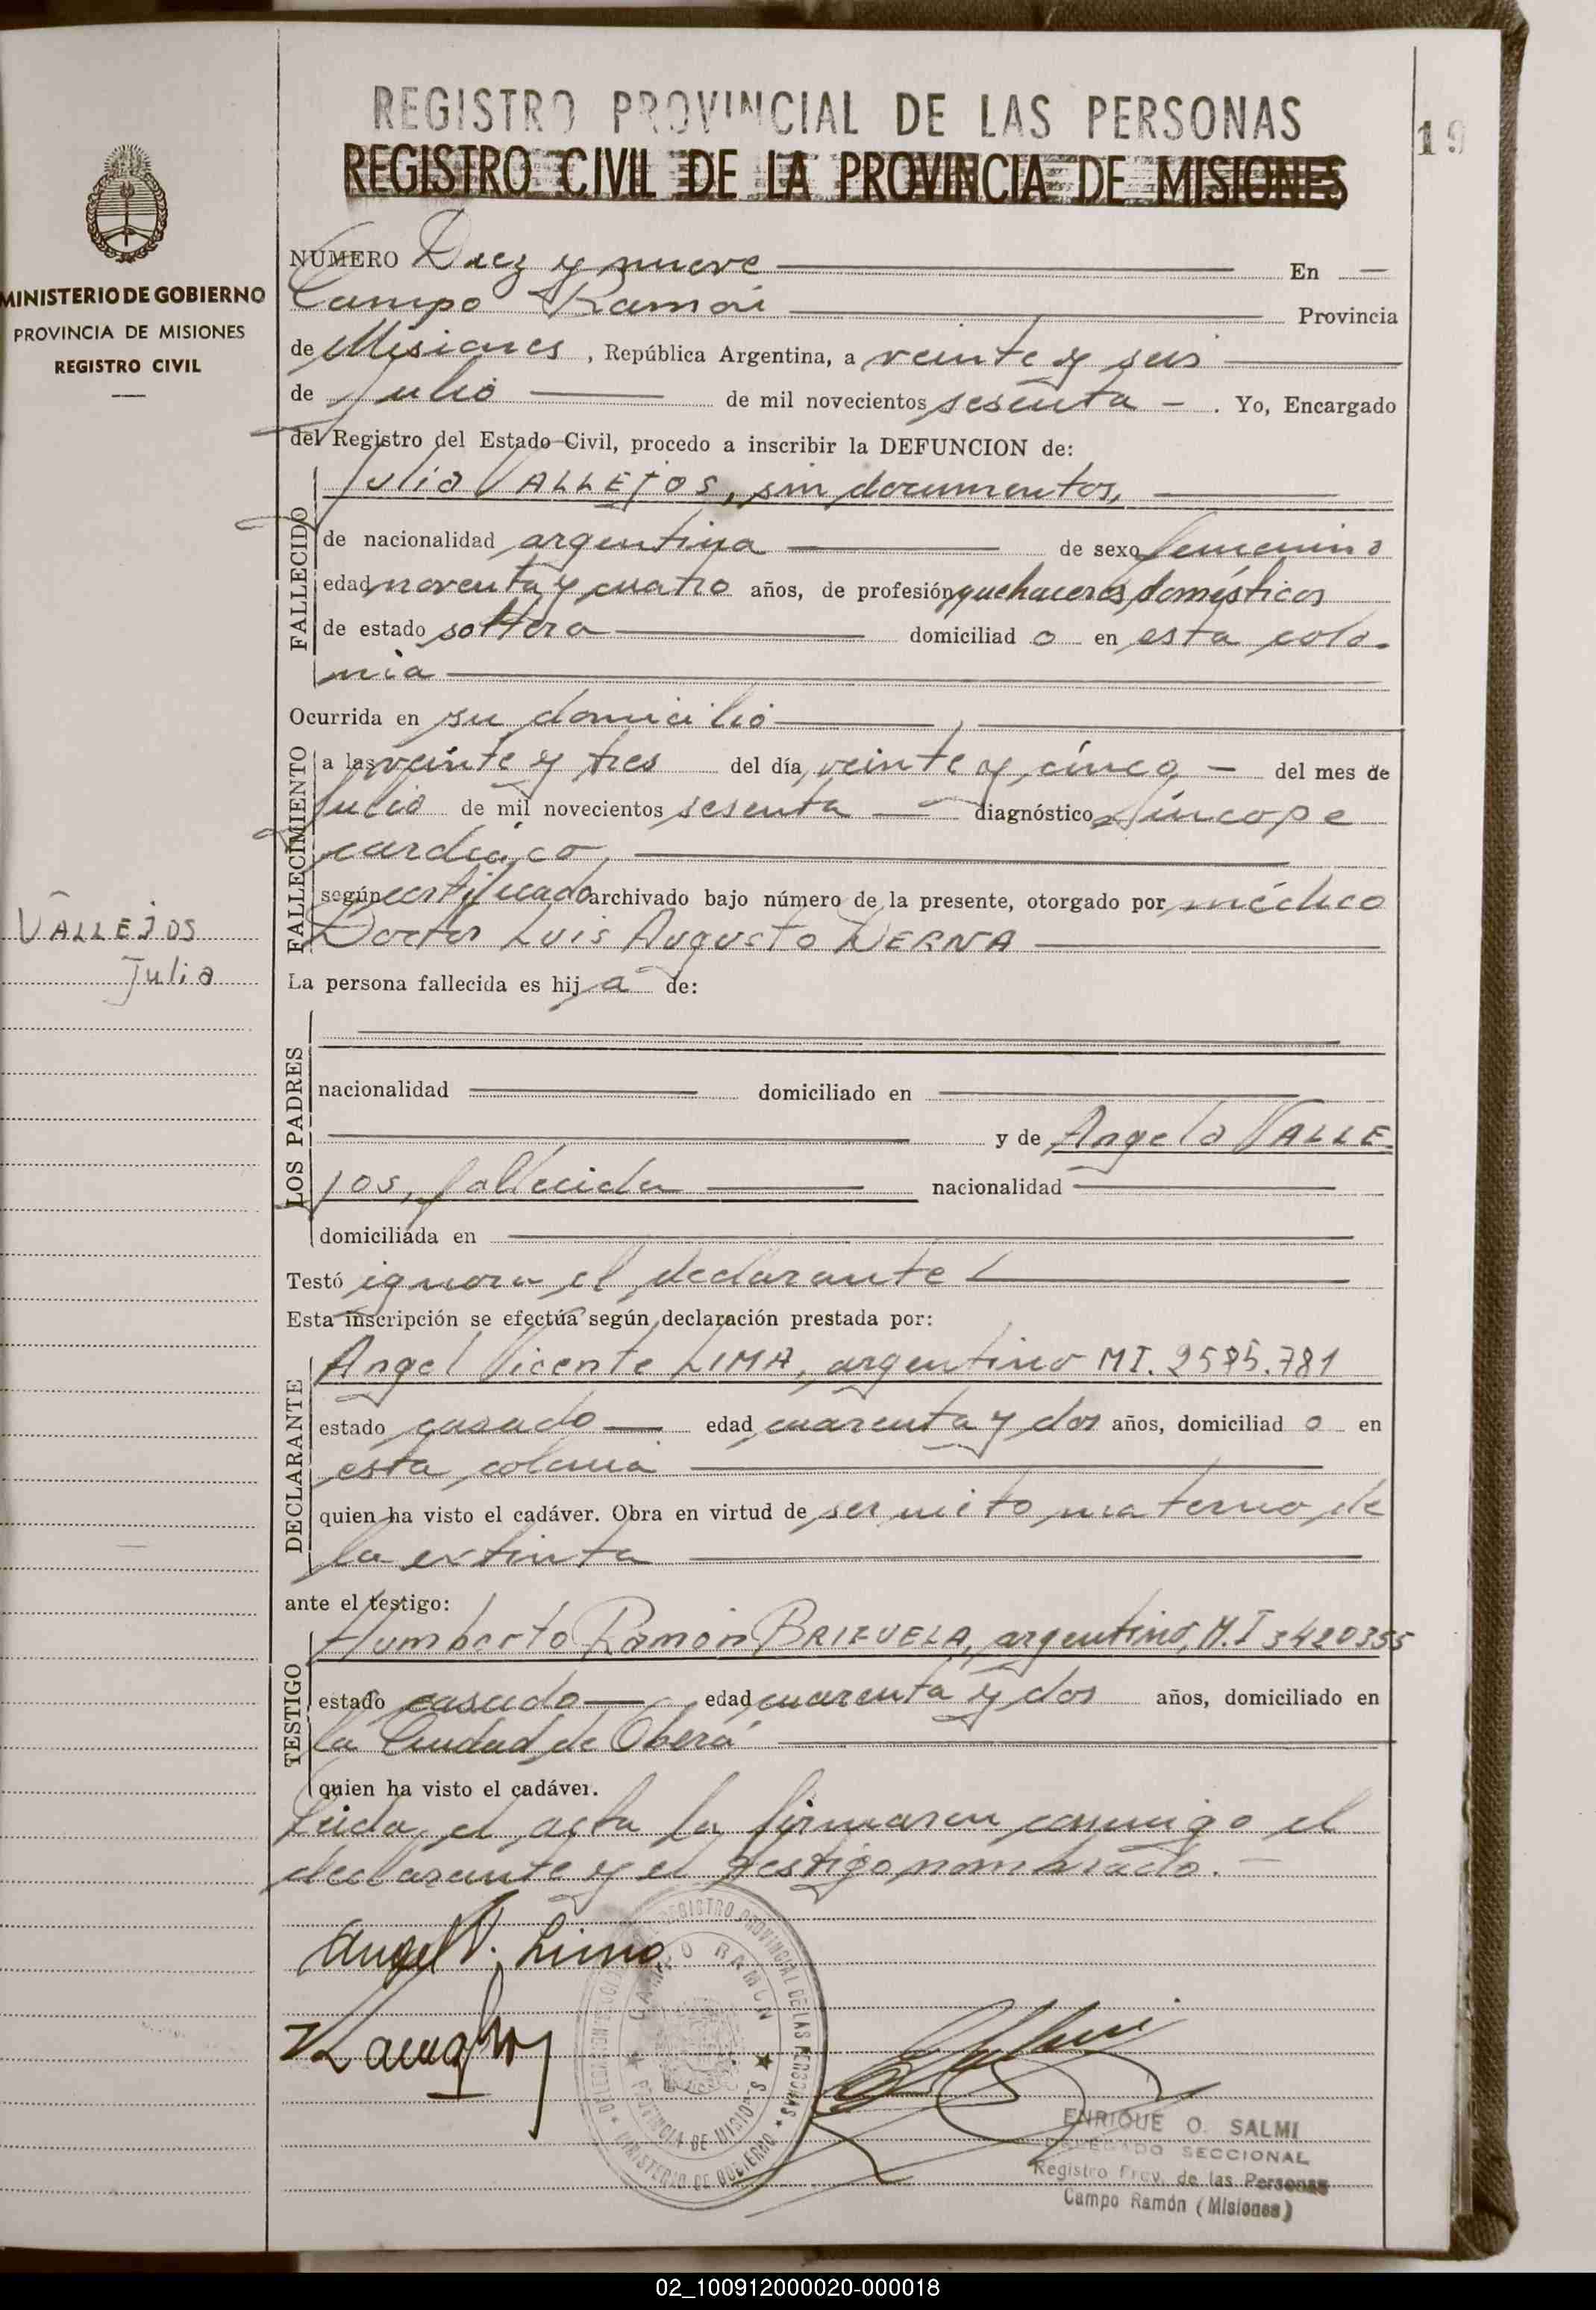 REGISTRO PROVINCIAL DE LAS PERSONAS
REGISTRO CIVIL DE LA PROVINCIA DE MISIONES
19
MINISTERIO DE GOBIERNO
PROVINCIA DE MISIONES
REGISTRO CIVIL
NUMERO Diez y nueve En
Campo Ramón Provincia
de Misiones, República Argentina, a veinte y seis
de Julio de mil novecientos sesenta. Yo, Encargado
del Registro del Estado Civil, procedo a inscribir la DEFUNCION de:
FALLECIDO
Julia VALLEJOS, sin documentos,
de nacionalidad argentina de sexo femenino
edad noventa y cuatro años, de profesión quehaceres domésticos
de estado soltera domiciliad o en esta colo-
nia
Ocurrida en su domicilio
FALLECIMIENTO
a las veinte y tres del día veinte y cinco del mes de
Julio de mil novecientos sesenta diagnóstico Síncope
cardíaco,
según certificado archivado bajo número de la presente, otorgado por médico
Doctor Luis Augusto DERNA
VALLEJOS
Julia
La persona fallecida es hij a de:
LOS PADRES
nacionalidad domiciliado en
y de Angela VALLE
jos, fallecida nacionalidad
domiciliada en
Testó ignora el declarante
Esta inscripción se efectúa según declaración prestada por:
DECLARANTE
Angel Vicente LIMA, argentino MI. 2585.781
estado casado edad cuarenta y dos años, domiciliad o en
esta colonia
quien ha visto el cadáver. Obra en virtud de ser nieto materno de
la extinta
ante el testigo:
TESTIGO
Humberto Ramón BRIZUELA, argentino, M.I 3420355
estado casado edad cuarenta y dos años, domiciliado en
la Ciudad de Oberá
quien ha visto el cadáver.
Leida el acta la firmaron conmigo el
declarante y el testigo nombrado.-
Angel V. Lima
REGISTRO PROVINCIAL DE LAS PERSONAS
CAMPO RAMON
PROVINCIA DE MISIONES
MINISTERIO DE GOBIERNO
ENRIQUE O. SALMI
DELEGADO SECCIONAL
Registro Prov. de las Personas
Campo Ramón (Misiones)
02_100912000020-000018